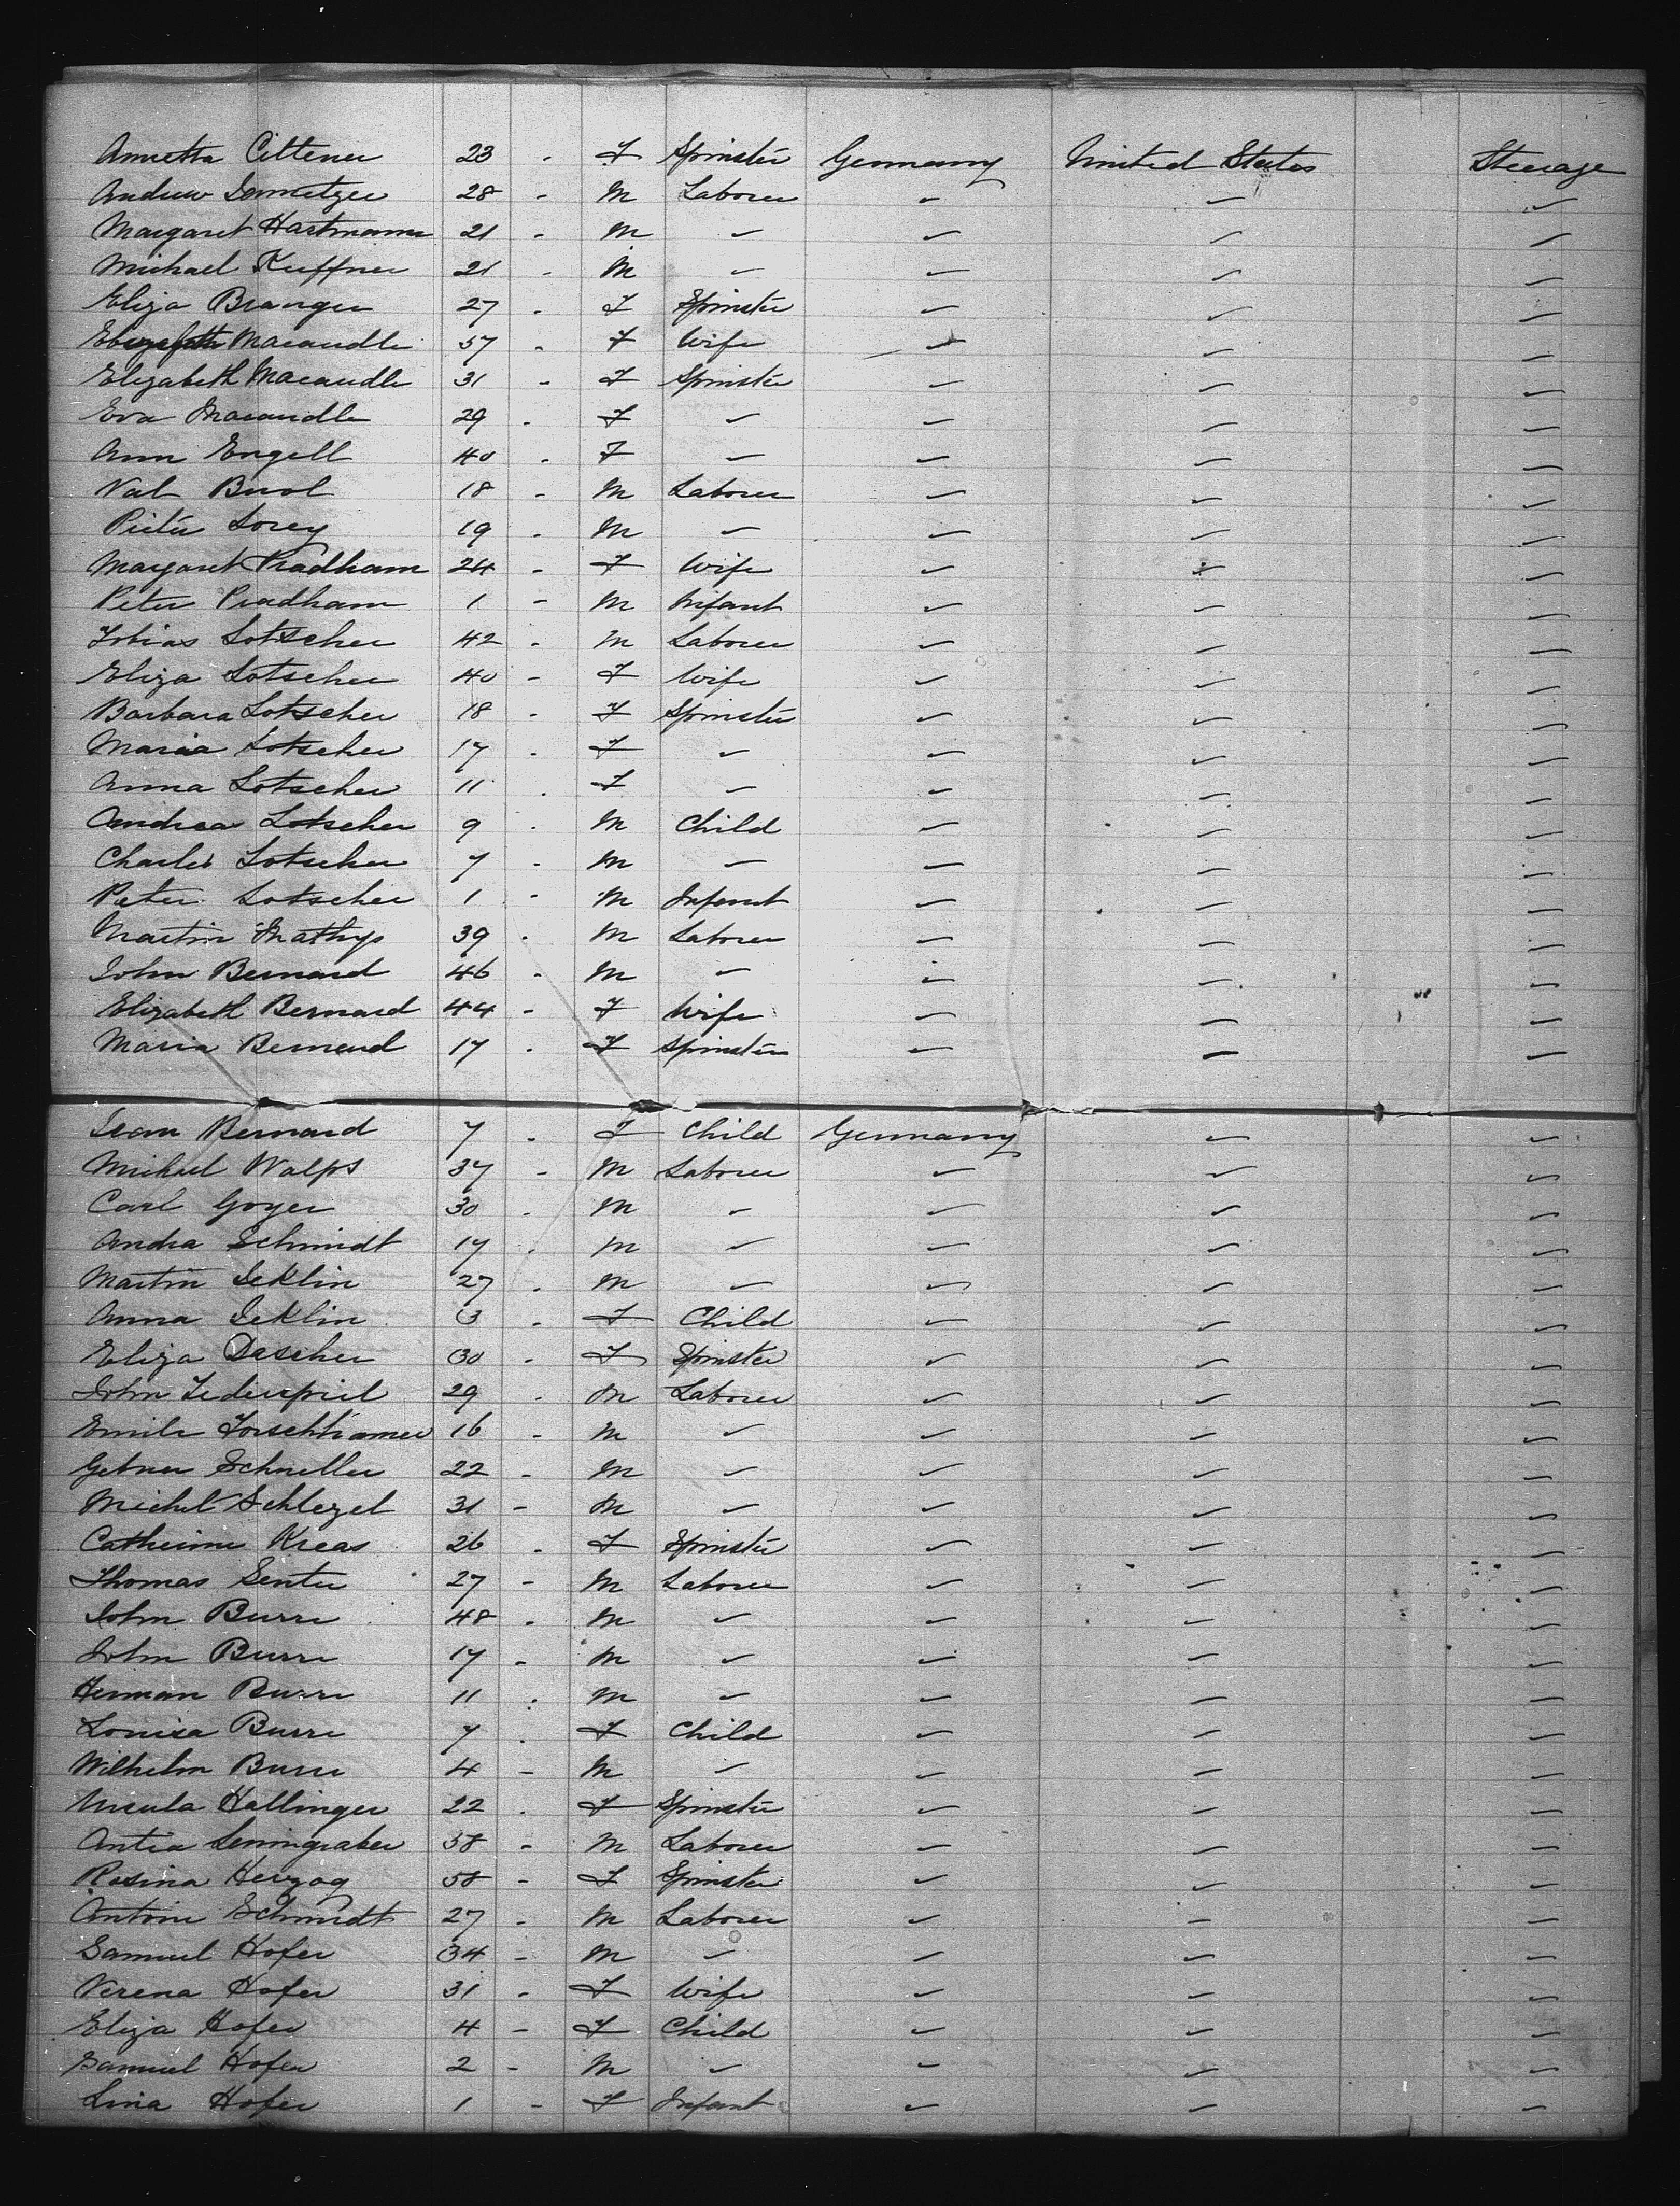 Annetta Cittener 23 - F Spinster Germany United States Steerage
Andrew 28 - M Laborer " " "
Margaret Hartmann 21 - M " " " "
Michael Kuffner 21 - M " " " "
Eliza Branger 27 - F Spinster " " "
Elizabeth Macaudle 57 - F Wife " " "
Elizabeth Macaudle 31 - F Spinster " " "
Eva Macaudle 29 - F " " " "
Ann Engell 40 - F " " " "
Val Buol 18 - M Laborer " " "
Pieter Sorey 19 - M " " " "
Margaret Pradham 24 - F Wife " " "
Peter Pradham 1 - M Infant " " "
Tobias Lotscher 42 - M Laborer " " "
Eliza Lotscher 40 - F Wife " " "
Barbara Lotscher 18 - F Spinster " " "
Maria Lotscher 17 - F " " " "
Anna Lotscher 11 - F " " " "
Andrea Lotscher 9 - M Child " " "
Charles Lotscher 7 - M " " " "
Peter Lotscher 1 - M Infant " " "
Martin Mathys 39 - M Laborer " " "
John Bernard 46 - M " " " "
Elizabeth Bernard 44 - F Wife " " "
Maria Bernard 17 - F Spinster " " "
Jean Bernard 7 - F Child Germany " "
Michael Walps 37 - M Laborer " " "
Carl Goyer 30 - M " " " "
Andra Schmidt 17 - M " " " "
Martin Jeklin 27 - M " " " "
Anna Jeklin 3 - F Child " " "
Eliza Dascher 30 - F Spinster " " "
John Federspiel 29 - M Laborer " " "
Emile 16 - M " " " "
Schneller 22 - M " " " "
Michel Schlegel 31 - M " " " "
Catherine Kreas 26 - F Spinster " " "
Thomas Senter 27 - M Laborer " " "
John Burre 48 - M " " " "
John Burre 17 - M " " " "
Herman Burre 11 - M " " " "
Louisa Burre 7 - F Child " " "
Wilhelm Burre 4 - M " " " "
Ursula Hallinger 22 - F Spinster " " "
Antia 58 - M Laborer " " "
Rosina Herzog 58 - F Spinster " " "
Antoni Schmidt 27 - M Laborer " " "
Samuel Hofer 34 - M " " " "
Verena Hofer 31 - F Wife " " "
Eliza Hofer 4 - F Child " " "
Samuel Hofer 2 - M " " " "
Lina Hofer 1 - F Infant " " "